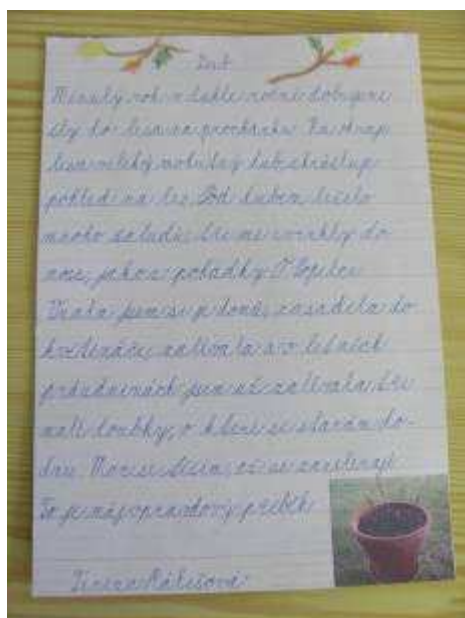 Dub
Minulý rok v takhle roční dobu jsme
šly do lesa na procházku. Na okraji
lesa veliký mohutný dub, skrástup
pohled na les. Pod dubem leželo
mnoho žaludů, tři mi cvrnkly do
nosu, jako z pohádky O
Vzala jsem si je domů, zasadila do
květináče, zalívala a v letních
prázdninách jsem už zalívala tři
malé doubky, o které se starám do-
dnes. Moc se těším, až se zazelenají.
To je můj opravdový příběh.
Tereza